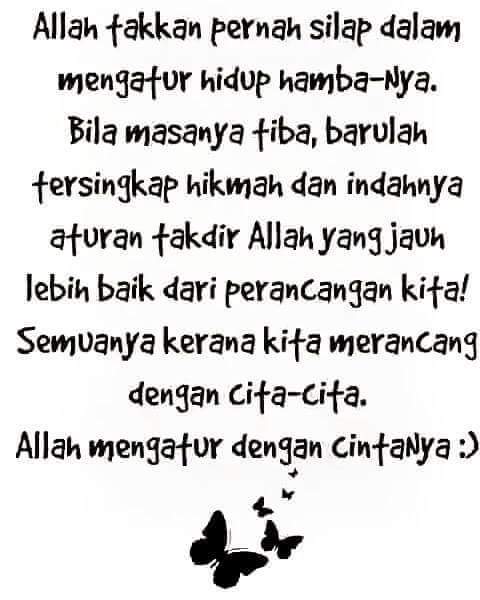 Allah takkan pernah silap dalam
mengatur hidup hamba-Nya.
Bila masanya tiba, barulah
tersingkap hikmah dan indahnya
aturan takdir Allah yang jauh
lebih baik dari perancangan kita!
Semuanya kerana kita merancang
dengan cita-cita.
Allah mengatur dengan cintaNya :)